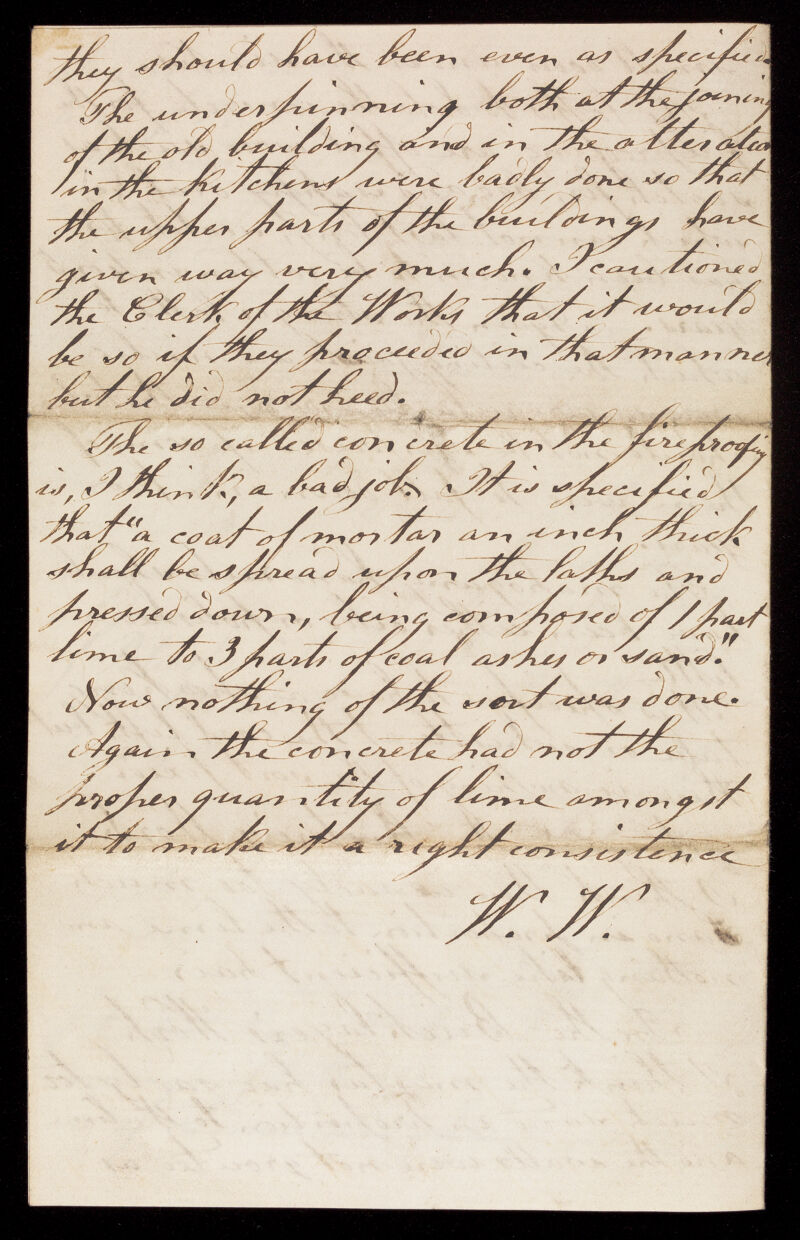 they should have been even as specified
The underpinning both at the joining
of the old building and in the alteration
in the kitchens were badly done so that
the upper parts of the buildings have
given way very much. I cautioned
the Clerk of the Works that it would
be so if they proceeded in that manner
but he did not heed.
The so called concrete in the fireproofing
is, I think, a bad job. It is specified
that "a coat of mortar an inch thick
shall be spread upon the laths and
pressed down, being composed of 1 part
lime to 3 parts of coal ashes or sand."
Now nothing of the sort was done.
Again the concrete had not the
proper quantity of lime amongst
it to make it a right consistence
W. W.